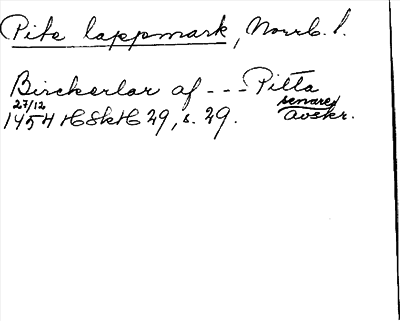 Pite lappmark, Norrb. l.
Birckerlar af --- Pitta
27/12 senare
1454 HSkH 29, s. 29. avskr.